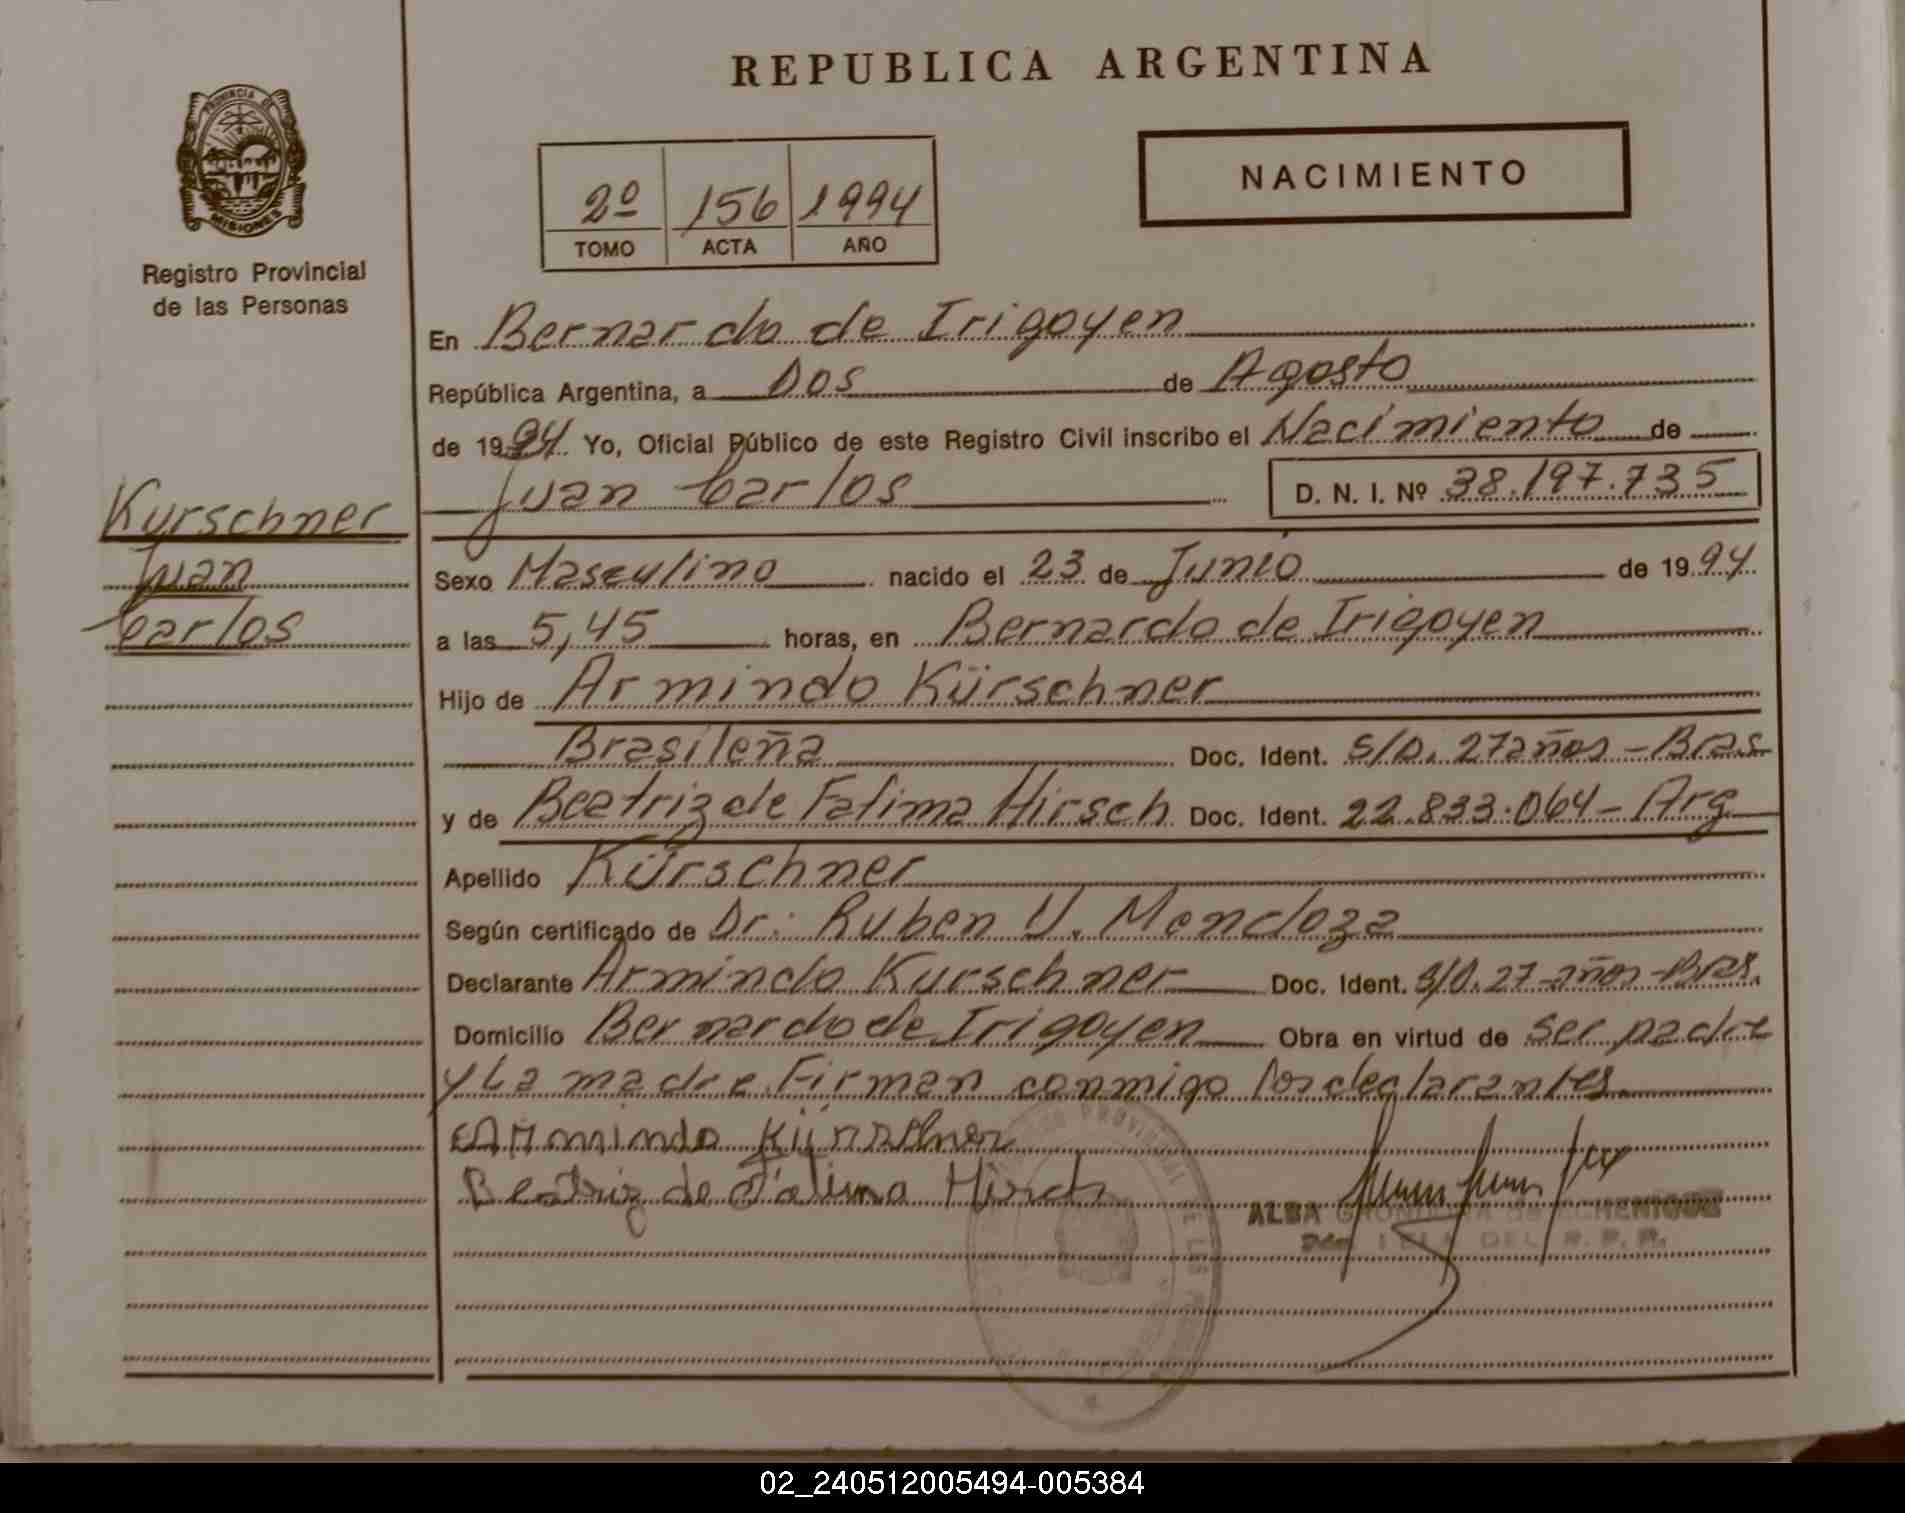 REPUBLICA ARGENTINA
NACIMIENTO
2º 156 1994
TOMO ACTA AÑO
PROVINCIA DE
MISIONES
Registro Provincial
de las Personas
En Bernardo de Irigoyen
República Argentina, a Dos de Agosto
de 1994 Yo, Oficial Público de este Registro Civil inscribo el Nacimiento de
Juan Carlos D. N. I. Nº 38.197.735
Kurschner
Juan
Carlos
Sexo Masculino nacido el 23 de Junio de 1994
a las 5,45 horas, en Bernardo de Irigoyen
Hijo de Armindo Kürschner
Brasileña Doc. Ident. S/D. 27 años - Bras
y de Beatriz de Fatima Hirsch Doc. Ident. 22.833.064 - Arg
Apellido Kürschner
Según certificado de Dr: Ruben V. Mendoza
Declarante Armindo Kurschner Doc. Ident. S/D. 27 años - Bras.
Domicilio Bernardo de Irigoyen Obra en virtud de ser padre
y La madre. Firman conmigo los declarantes.
Armindo Kürschner
Beatriz de Fatima Hirsch
ALBA de ECHENIQUE
DEL R. P. P.
02_240512005494-005384